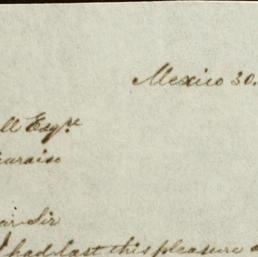 Mexico 30.
ll Esqre
paraiso
ear Sir
I had last this pleasure